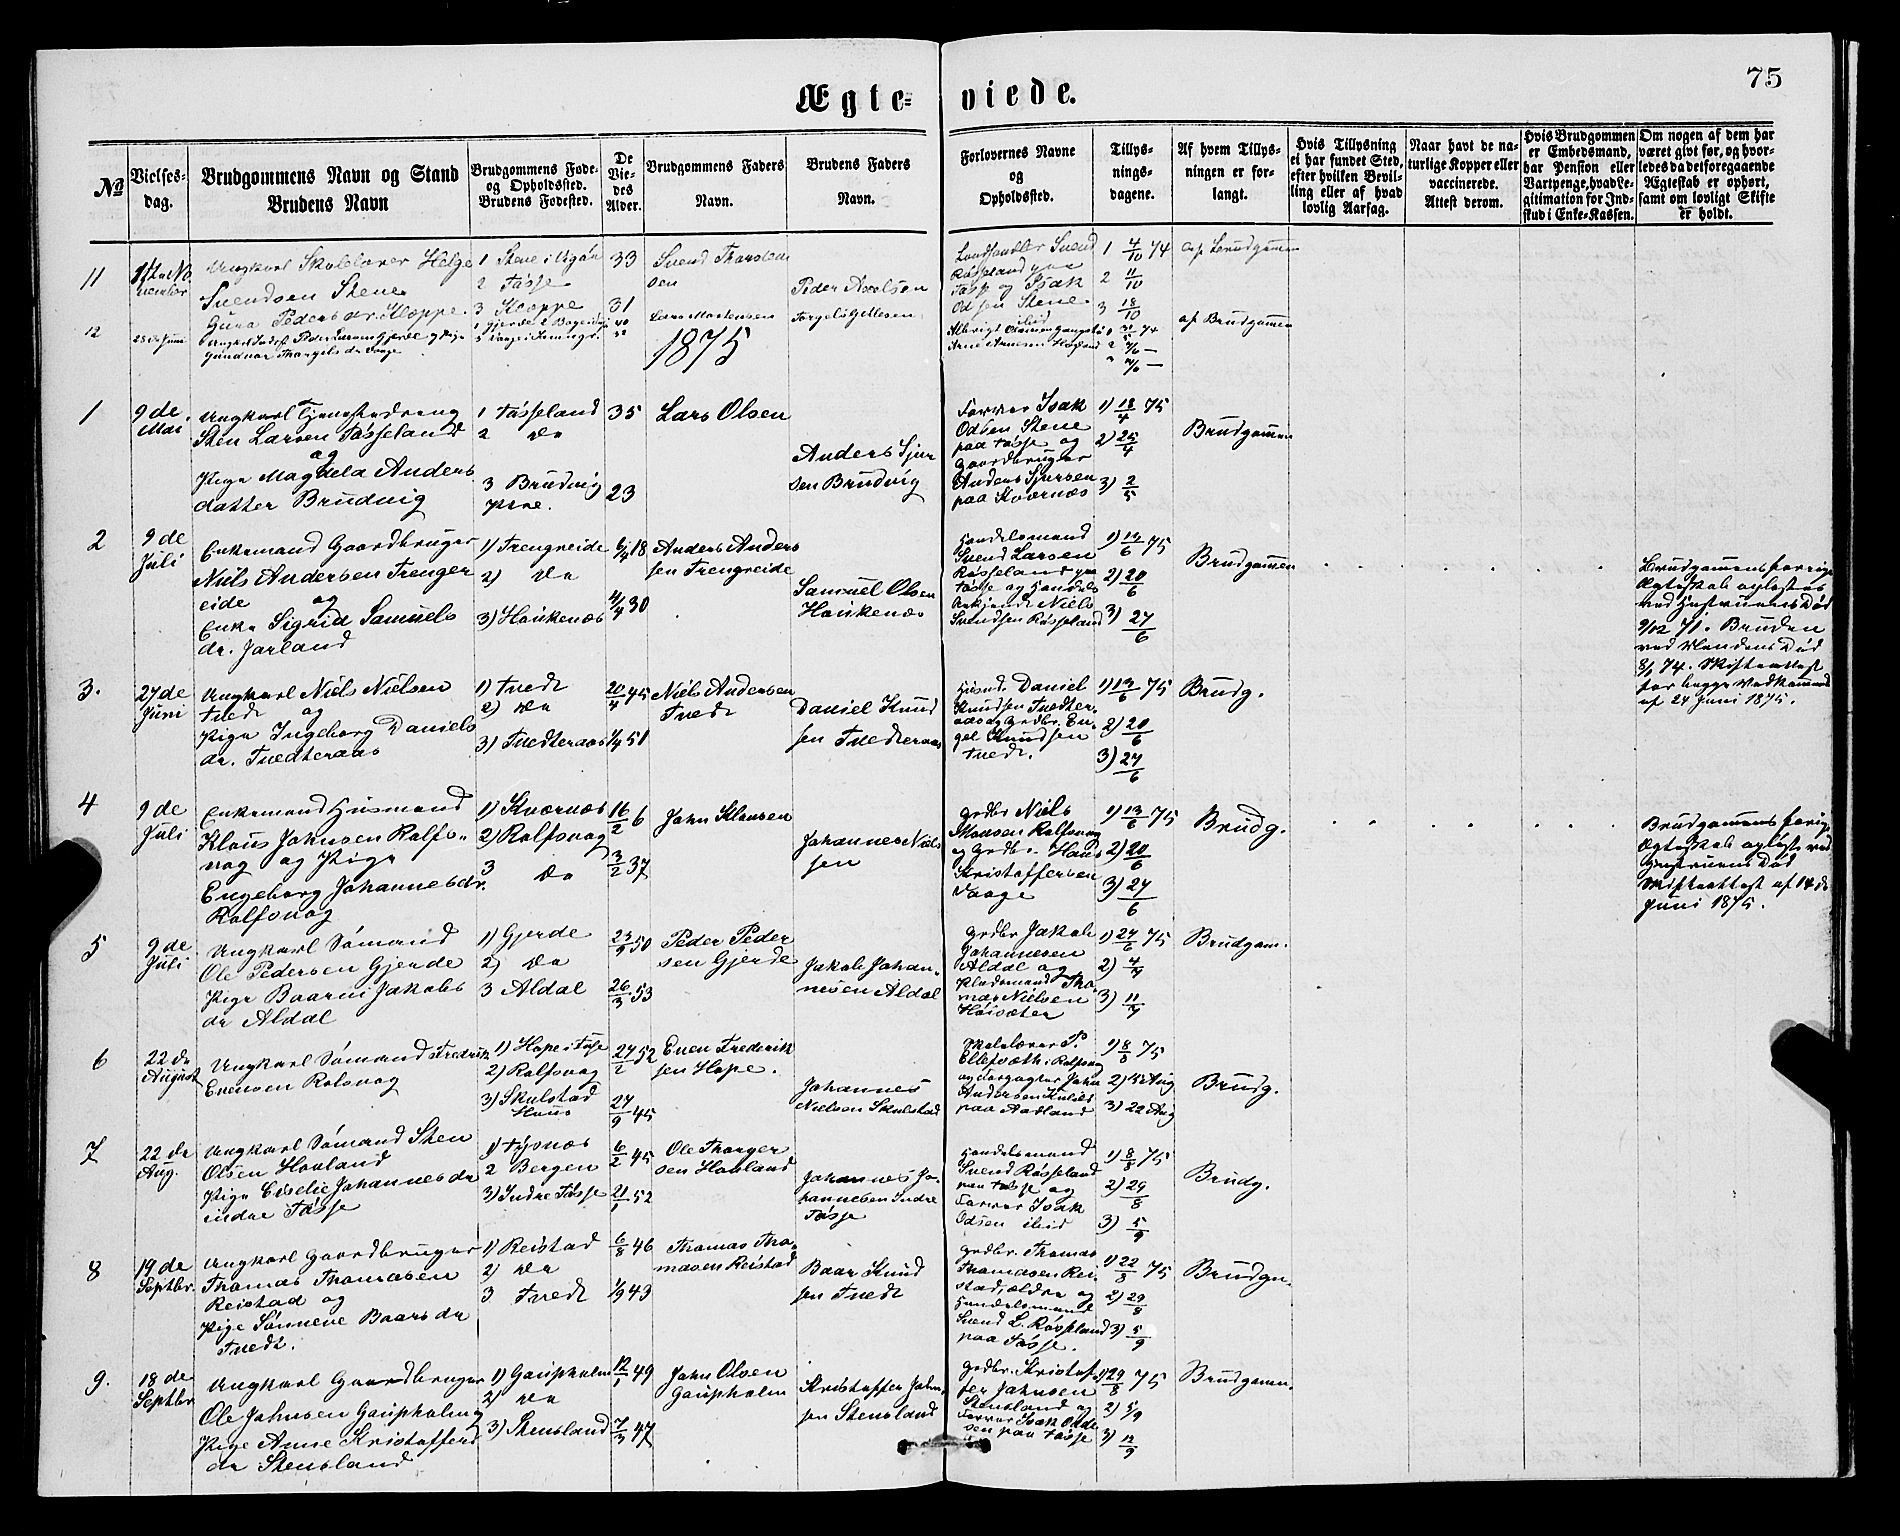 75
Ægte-
viede.
No.
Vielses-
dag.
Brudgommens Navn og Stand
Brudens Navn
Brudgommens Føde-
og Opholdssted.
Brudens Fødested.
De
Vie-
des
Alder.
Brudgommens Faders
Navn.
Brudens Faders
Navn.
Forlovernes Navne
og
Opholdssted.
Tillys-
nings-
dagene.
Af hvem Tillys-
ningen er for-
langt.
Hvis Tillysning
ei har fundet Sted,
efter hvilken Bevil-
ling eller af hvad
lovlig Aarsag.
Naar havt de na-
turlige Kopper eller
vaccinerede.
Attest derom.
Hvis Brudgommen
er Embedsmand,
har Pension eller
Vartpenge, hvad Le-
gitimation for Ind-
skud i Enke-Kassen.
Om nogen af dem har
været givt før, og hvor-
ledes da det foregaaende
Ægteskab er ophørt,
samt om lovligt Skifte
er holdt.
11
Ungkarl Skolelærer Helge
Svendsen Stene
Guna Pedersdr. Kloppe.
2 Tøsse
3 Kloppe
33
31
Svend Thorsten
sen
Peder Nævelsen
Landhandler Svend
Røsseland paa
Tøsse og Isak
Odsen Stene
ibid
1 4/10 74
2 11/10
3 18/10
af Brudgommen
12
25de Juni
Lars Mortensen
af Brudgommen
1875
1
9de
Mai
Ungkarl Tjenestedreng
Sten Larsen Tøsseland
og
Pige Magdela Anders
datter Brudvig
1 Tøsseland
2 do
3 Brudvig
35
23
Lars Olsen
Anders Sjur
sen Brudvig
Farver Isak
Odsen Stene
paa Tøsse og
Gaardbruger
Anders Sjursen
paa Kværnæs
1) 18/4 75
2) 25/4
3) 2/5
Brudgommen
2
9de
Juli
Enkemand Gaardbruger
Niels Andersen Trenger
eide og
Enke Sigrid Samuels
dr. Jarland
1) Trengreide
2) do
3) Haukenæs
6/4 18
4/4 30
Anders Anders
sen Trengreide
Samuel Olsen
Haukenæs
Handelsmand
Svend Larsen
Røsseland paa
Tøsse og Handels
betjent Niels
Svendsen Røsseland
1) 13/6 75
2) 20/6
3) 27/6
Brudgommen
Brudgommens forrige
Ægteskab opløstes
ved Hustruens Død
9/12 71. Bruden
ved Mandens Død
8/1 74. Skifteattest
for begge Vedkommende
af 24 Juni 1875.
3.
27de
Juni
Ungkarl Niels Nielsen
Tvedt og
Pige Ingeborg Daniels
dr. Tvedteraas
1) Tvedt
2) do
3) Tvedteraas
20/4 45
1/4 51
Niels Andersen
Tvedt
Daniel Knud
sen Tvedteraas
Husm. Daniel
Knudsen Tvedter
aas og Grdbr. En-
gel Knudsen
Tvedt.
1) 13/6 75
2) 20/6
3) 27/6
Brudg.
4
9de
Juli
Enkemand Husmand
Klaus Johnsen Rolfs-
vog og Pige
Engeborg Johannesdr.
Rolfsvog
1) Kværnæs
2) Rolfsvog
3 do
16/2 6
3/2 37
John Klausen
Johannes Niels
sen
Grdbr Niels
Monsen Rolfsvog
og Grdbr. Hans
Kristoffersen
Vaage
1) 13/6 75
2) 20/6
3) 27/6
Brudg.
Brudgommens forrige
Ægteskab opløst ved
Hustruens Død
Skifteattest af 14de
Juni 1875.
5
9de
Juli
Ungkarl Sømand
Ole Pedersen Gjerde
Pige Baarni Jakobs
dr Aldal
1) Gjerde
2) do
3 Aldal
23/9 50
26/3 53
Peder Peder
sen Gjerde
Jakob Johan-
nesen Aldal
Grdbr Jakob
Johannesen
Aldal og
Pladsmand Tho-
mas Nielsen
Høisæter
1) 27/6 75
2) 4/7
3) 11/7
Brudgom.
6
22de
August
Ungkarl Sømand Fredrik
Evensen Rolsvog
1) Hope i Fuse
2) Rolfsvog
3) Skulstad
Haus
27/2 52
27/9 45
Even Frederik
sen Hope.
Johannes
Nielsen Skulstad
Skolelærer P.
Ellefsæth i Rolfsvog
og Forpagter John
Andersen
paa Aadland
1) 8/8 75
2) 15 Aug
3) 22 Aug
Brudg.
7
22de
Aug.
Ungkarl Sømand Sten
Olsen Havland
Pige Eiselie Johannesdr
indre Tøsse
1) Tysnæs
2 Bergen
3) Indre Tøsse
6/2 45
21/1 52
Ole Thorger
sen Havland
Johannes Jo-
hannesen Indre
Tøsse
Handelsmand
Svend Røsseland
paa Tøsse og
Farver Isak
Odsen ibid
1) 8/8 75
2) 29/8
3) 5/9
Brudg.
8
19de
Septbr.
Ungkarl Gaardbruger
Thomas Thomasen
Reistad og
Pige Sønneve Baars dr
Tvedt.
1) Reistad
2) do
3 Tvedt
6/8 46
1/9 43
Thomas Tho-
masen Reistad
Baar Knud
sen Tvedt
Grdbr. Thomas
Thomasen Rei-
stad, ældre og
Handelsmand
Svend L. Røsseland
paa Tøsse.
1) 22/8 75
2) 29/8
3) 5/9
Brudgu.
9.
18de
Septbr
Ungkarl Gaardbruger
Ole Johnsen Gaupholm og
Pige Anne Kristoffers
dr Stensland
1) Gaupholm
2) do
3) Stensland
12/1 49
7/3 47
John Olsen
Gaupholm
Kristoffer John-
sen Stensland
Grdbr. Kristof-
fer Johnsen
Stensland og
Farver Isak Odde
sen paa Tøsse
1) 29/8 75
2) 5/9
3) 12/9
Brudgomm.